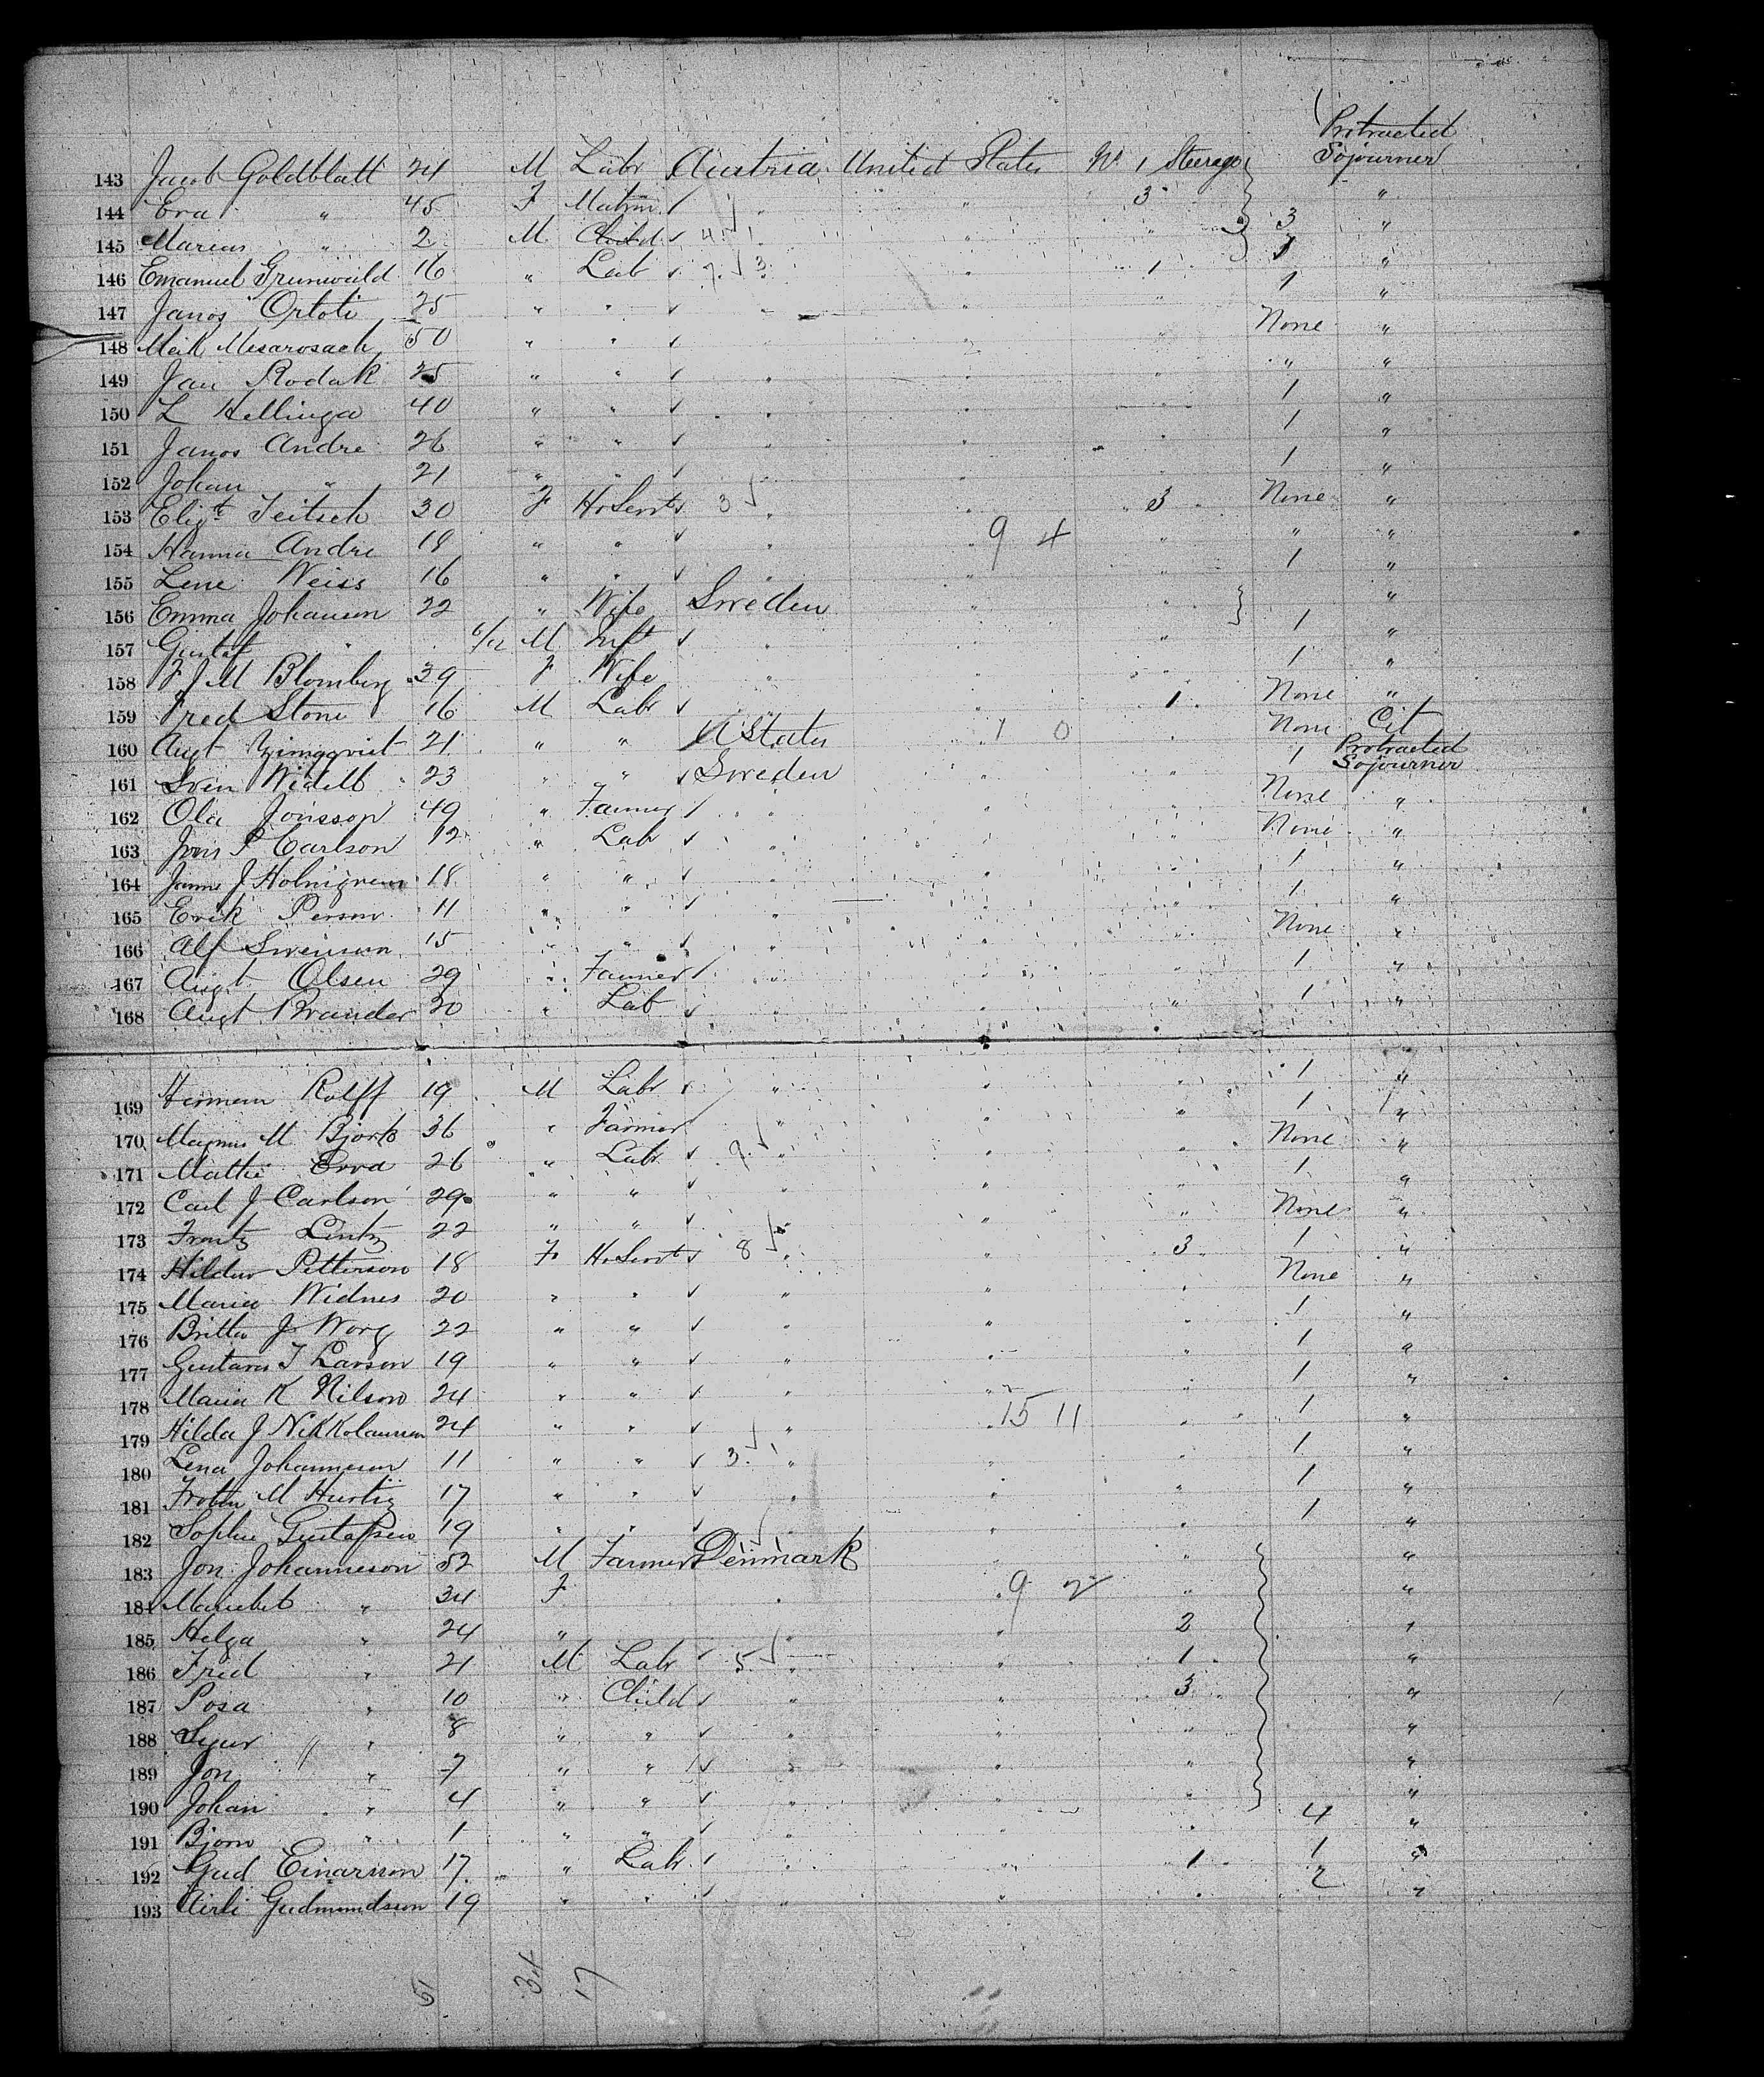 Protracted
143 Jacob Goldblatt 24 M Labr Austria United States No 1 Steerage Sojourner
144 Eva " 45 F Matron " " 3 "
145 Marcus " 2 M Child " " " 3 "
146 Emanuel Grunwald 16 " Lab " " 1 1 "
147 Janos Ortoti 25 " " " " " 1 "
148 Meik Mesarosach 50 " " " " " None "
149 Jan Rodak 25 " " " " " " "
150 L Hellinga 40 " " " " " 1 "
151 Janos Andre 26 " " " " " 1 "
152 Johan " 21 " " " " " 1 "
153 Elizt Teitsch 30 F HrServts 3 " " 3 None "
154 Hanna Andre 18 " " " " 9 4 " " "
155 Lene Weiss 16 " " " " " 1 "
156 Emma Johanson 22 " Wife Sweden " " "
157 Gustaf " 6/12 M Inft " " " 1 "
158 F J M Blomberg 39 F Wife " " " 1 "
159 Fred Stone 16 M Labr " " 1 None "
160 Augt 21 " " U States 1 0 " None Cit
Protracted
161 Sven Widell 23 " " Sweden " " 1 Sojourner
162 Ola Jonsson 49 " Farmer " " " None "
163 Jons P Carlson 12 " Lab " " " None "
164 J Holmgren 18 " " " " " 1 "
165 Erik Person 11 " " " " " 1 "
166 Alf Swenson 15 " " " " " None "
167 Augt Olsen 29 " Farmer " " " 1 "
168 Augt Brander 20 " Lab " " " 1 "
169 Herman Rolff 19 M Labr " " " 1 "
170 Magnus M Bjork 36 " Farmer " " " 1 "
171 Mattie Erva 26 " Labr " " " None "
172 Carl J Carlson 29 " " " " " 1 "
173 Frantz Lintz 22 " " " " " None "
174 Hildur Petterson 18 F HrServts 8 " " 3 1 "
175 Maria Widnes 20 " " " " " None "
176 Britta J Worg 22 " " " " " 1 "
177 Gustava T Larson 19 " " " " " 1 "
178 Maria K Nilson 24 " " " " " 1 "
179 Hilda J Nikkolausen 24 " " " 15 11 " 1 "
180 Lena Johanneson 11 " " 3 1 " " " 1 "
181 M Hurtig 17 " " " " " 1 "
182 Sophie Gustafsen 19 " " " " " 1 "
183 Jon Johanneson 52 M Farmer Denmark " " "
184 Mariebet " 34 F " 9 2 " "
185 Helga " 24 " " " 2 "
186 Fred " 21 M Labr 5 " " 1 "
187 Posa " 10 " Child " " 3 "
188 Sigur " 8 " " " " " "
189 Jon " 7 " " " " " "
190 Johan " 4 " " " " " "
191 Bjorn " 1 " " " " " 4 "
192 Gud Einarsson 17 " Labr " " 1 1 "
193 Airli Gudmundsson 19 " " " " " 2 "
51 34 17